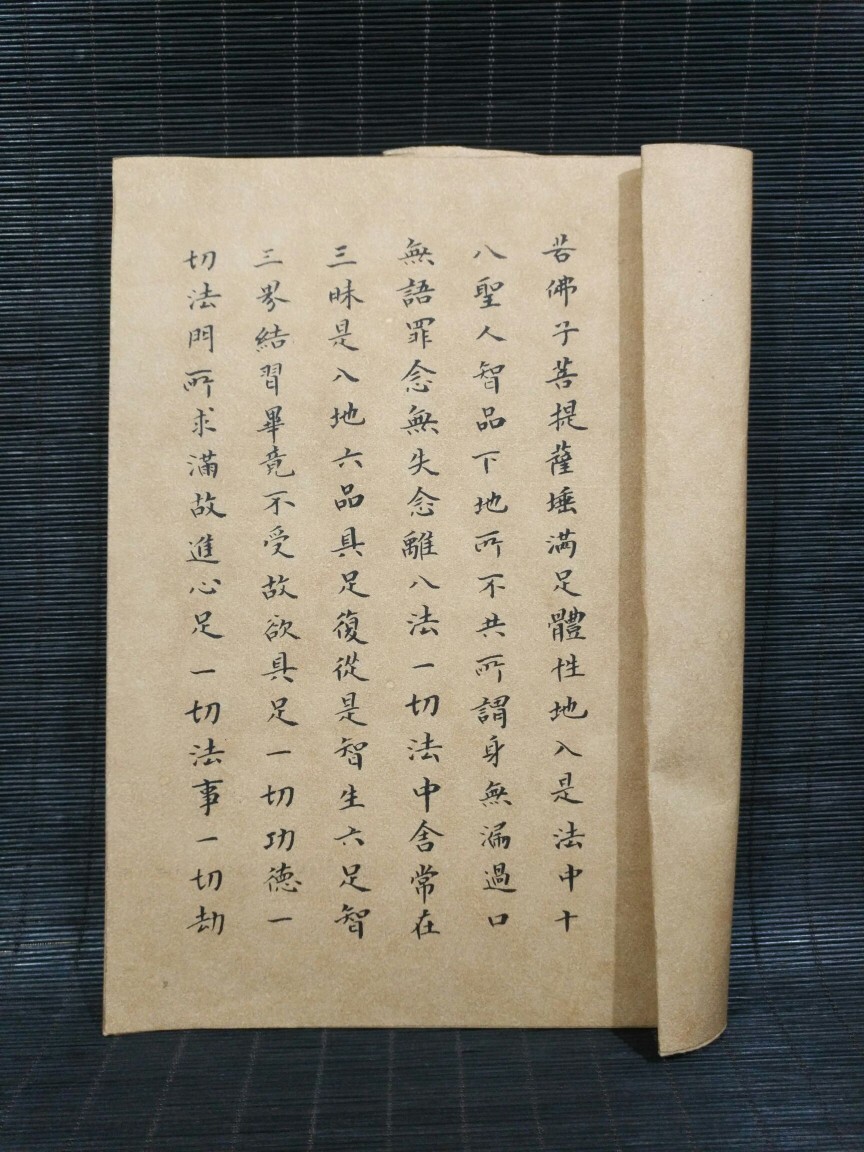 若佛子菩提薩埵满足體性地入是法中十
八聖人智品下地所不共所謂身無漏過口
無語罪念無失念離八法一切法中舍常在
三昧是入地六品具足復從是智生六足智
三界結習畢竟不受故欲具足一切功德一
切法門所求滿故進心足一切法事一切劫